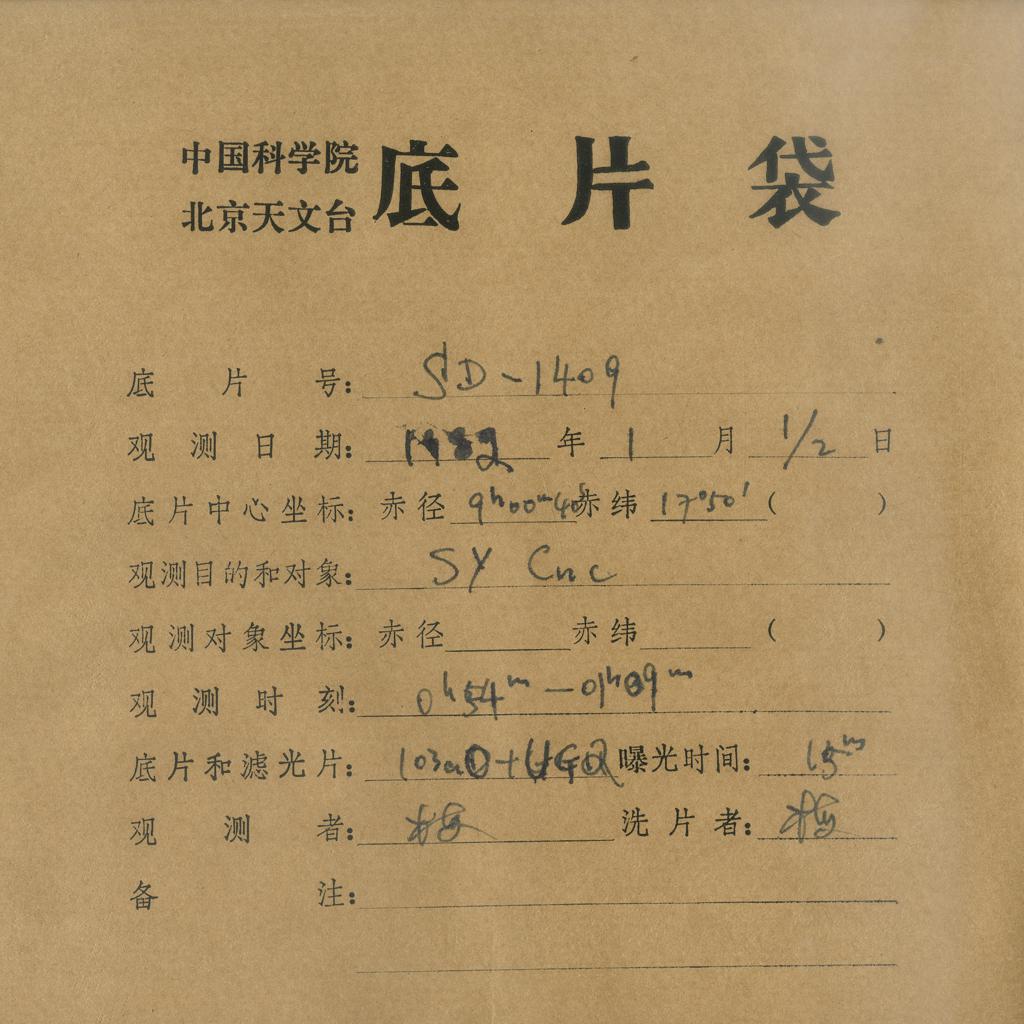 中国科学院
北京天文台
底片袋
底片号: SD-1409
观测日期: 1982 年 1 月 1/2 日
底片中心坐标: 赤径 9h00m40s 赤纬 17°50′ ( )
观测目的和对象: SY Cnc
观测对象坐标: 赤径 赤纬 ( )
观测时刻: 0h54m—01h09m
底片和滤光片: 103aO+ 曝光时间: 15m
观测者: 梅 洗片者: 梅
备注: